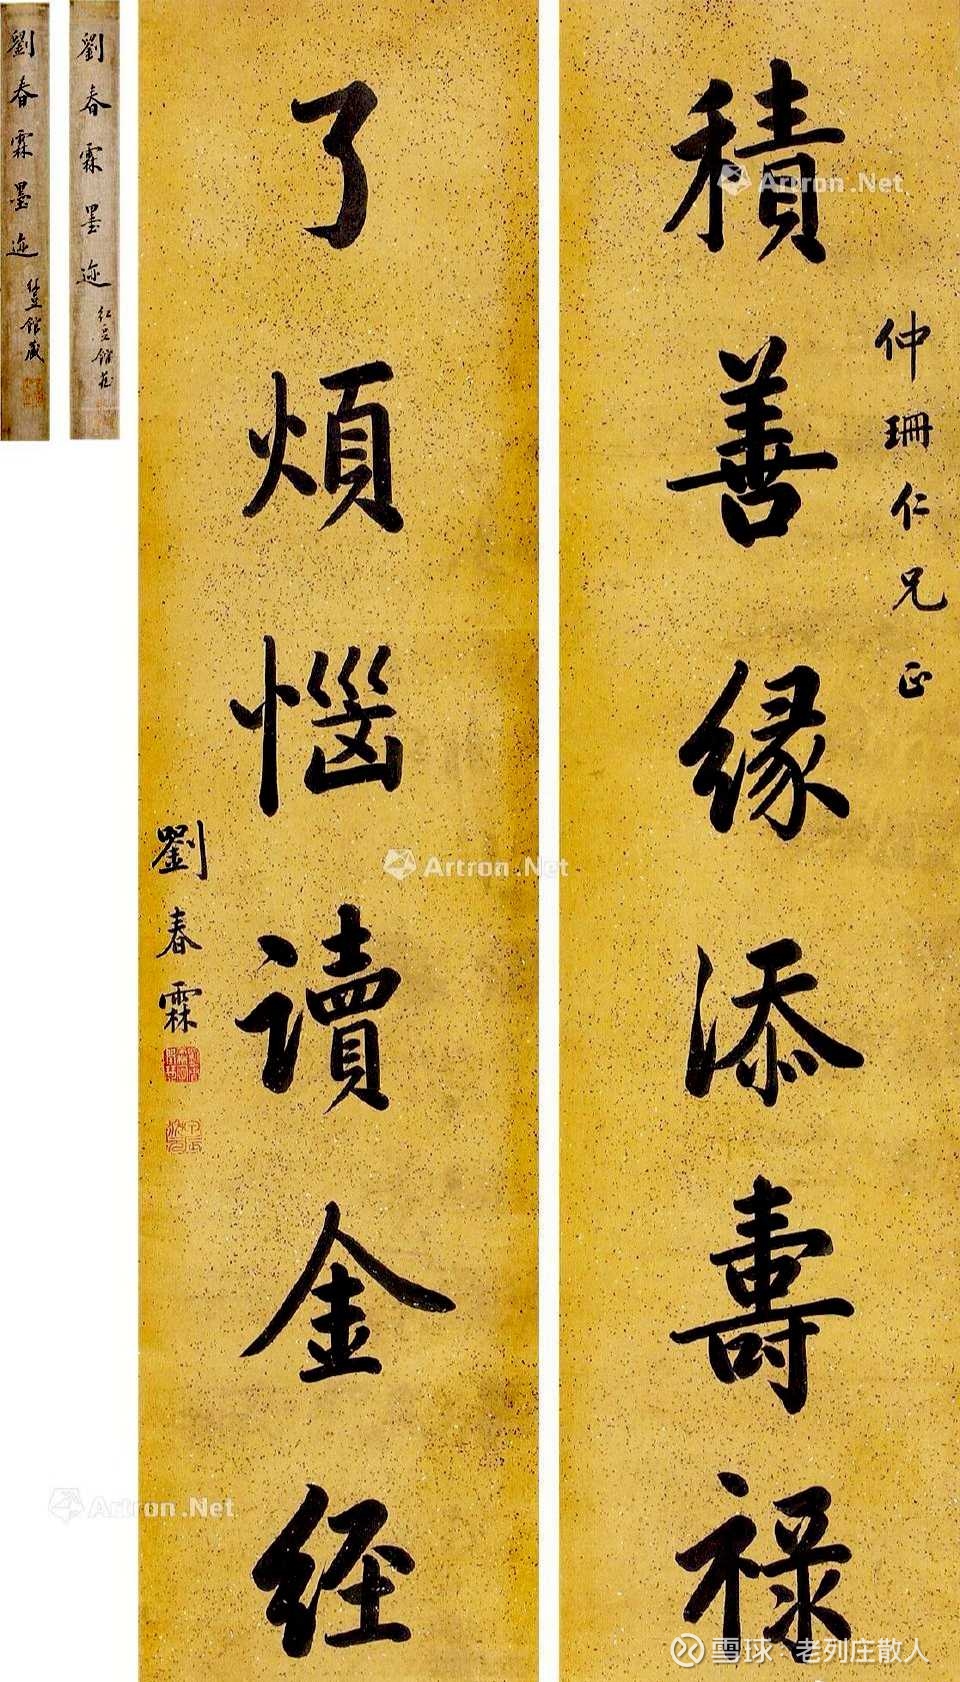 仲珊仁兄正
積善緣添壽祿
了煩惱讀金經
劉春霖
劉春霖墨迹
紅豆館藏
劉春霖墨迹
館藏
Artron.Net
Artron.Net
Artron.Net
雪球：老列庄散人